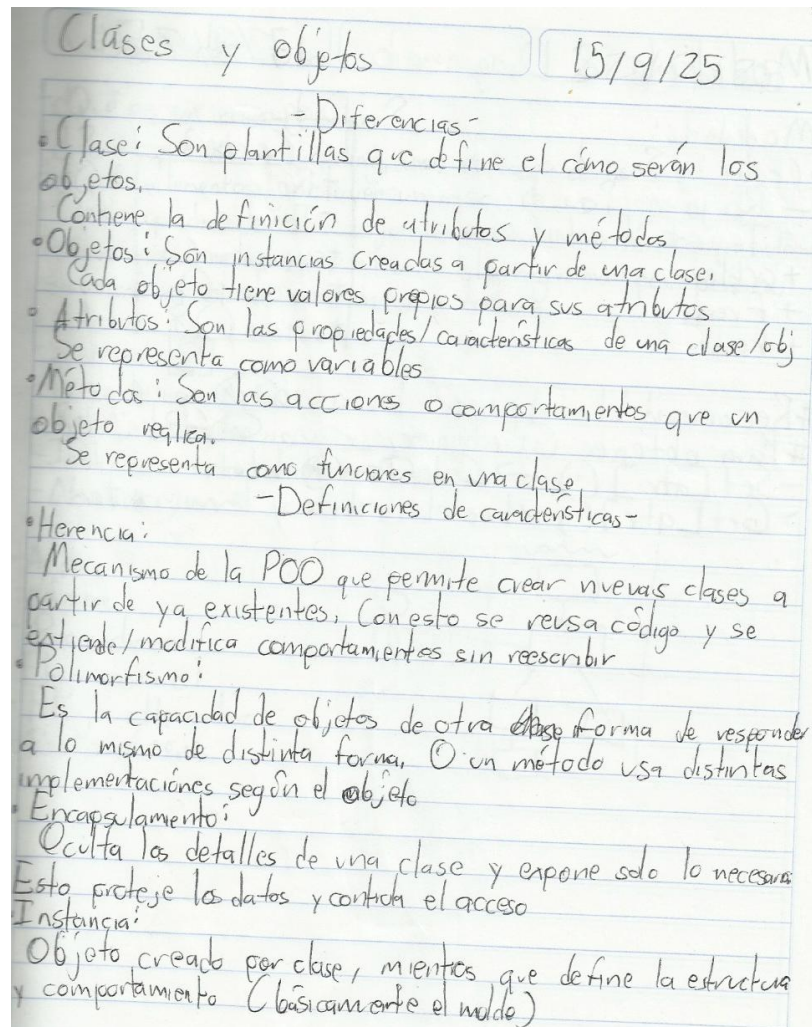 Clases y objetos 15/9/25
-Diferencias-
•Clase: Son plantillas que define el cómo serán los
objetos.
Contiene la definición de atributos y métodos
•Objetos: Son instancias creadas a partir de una clase.
Cada objeto tiene valores propios para sus atributos
•Atributos: Son las propiedades/características de una clase/obj
Se representa como variables
•Métodos: Son las acciones o comportamientos que un
objeto realiza.
Se representa como funciones en una clase
-Definiciones de características-
•Herencia:
Mecanismo de la POO que permite crear nuevas clases a
partir de ya existentes. Con esto se reusa código y se
extiende/modifica comportamientos sin reescribir
•Polimorfismo:
Es la capacidad de objetos de otra forma de responder
a lo mismo de distinta forma. O un método usa distintas
implementaciónes según el objeto
•Encapsulamiento:
Oculta los detalles de una clase y expone solo lo necesario
Esto proteje los datos y controla el acceso
•Instancia:
Objeto creado por clase, mientras que define la estructura
y comportamiento (básicamente el molde)